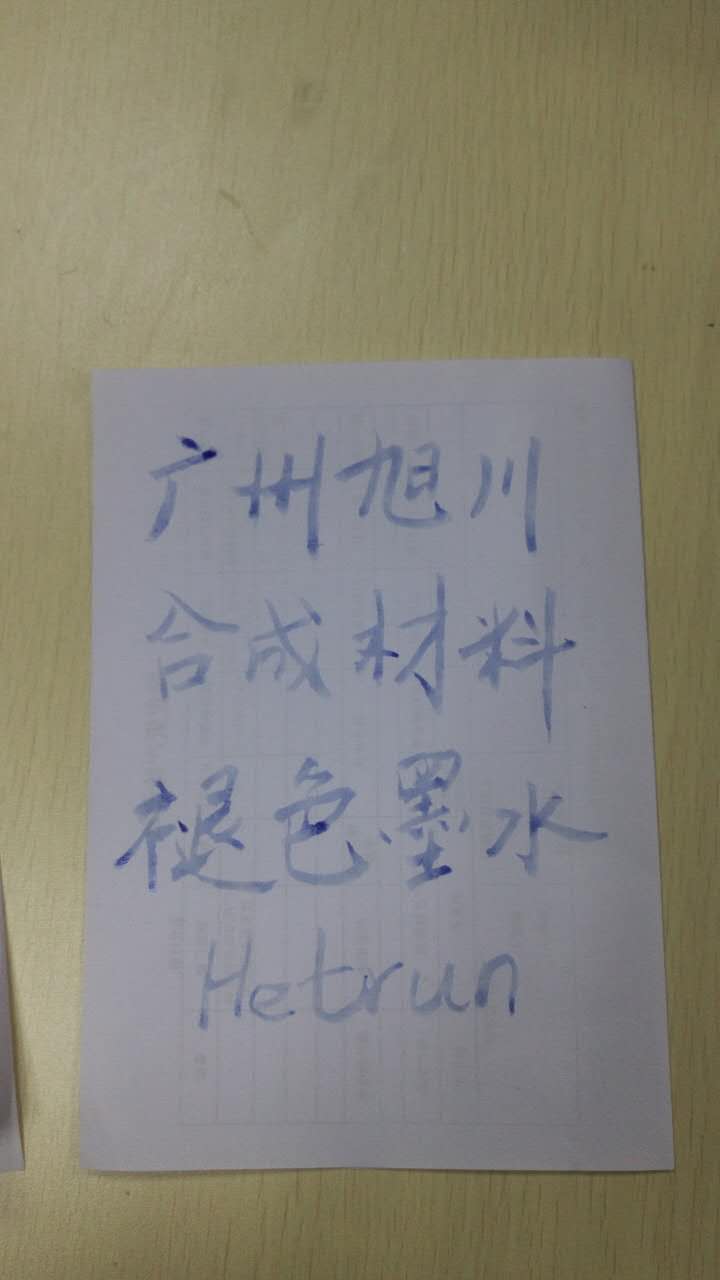 广州旭川
合成材料
褪色墨水
Hetrun